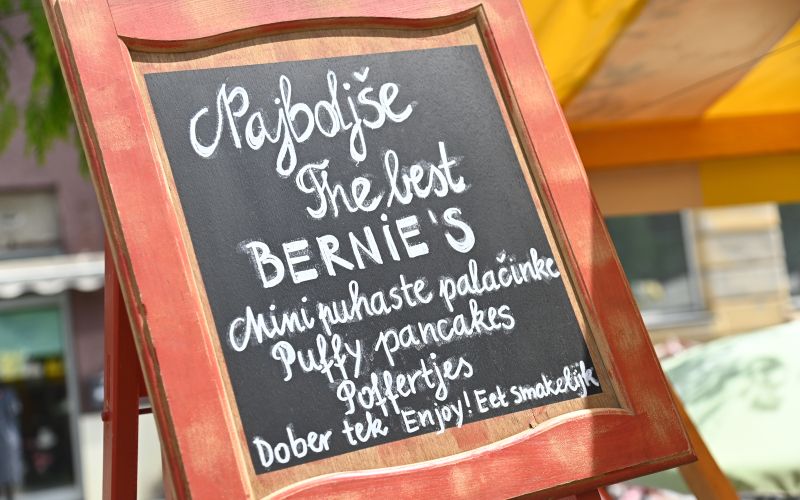 Najboljše
The best
BERNIE'S
Mini puhaste palačinke
Puffy pancakes
Poffertjes
Dober tek Enjoy! Eet smakelijk